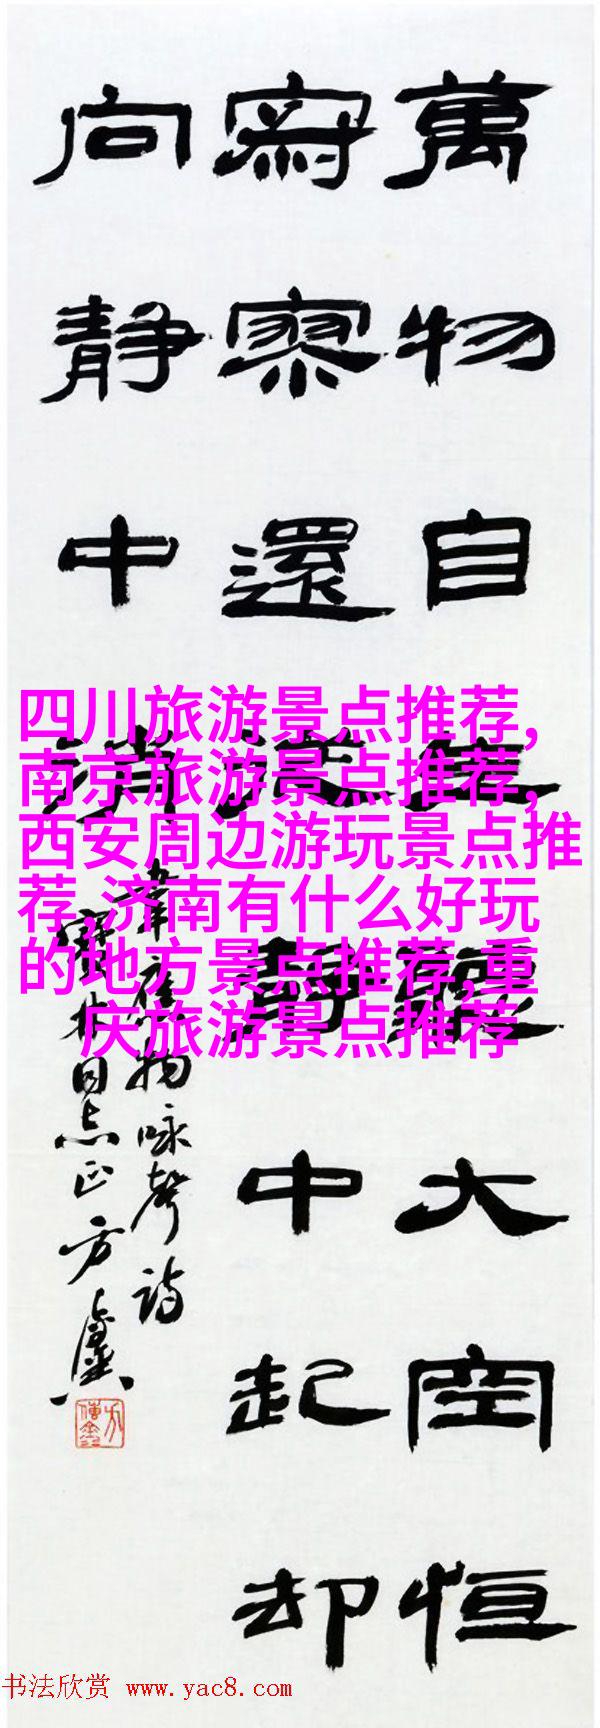 萬物自生聽大空恒
寂寥還從静中起却
向静中消
韋應物咏聲詩
寶林同志正 方
四川旅游景点推荐,
南京旅游景点推荐,
西安周边游玩景点推
荐,济南有什么好玩
的地方景点推荐,重
庆旅游景点推荐
书法欣赏 www.yac8.com